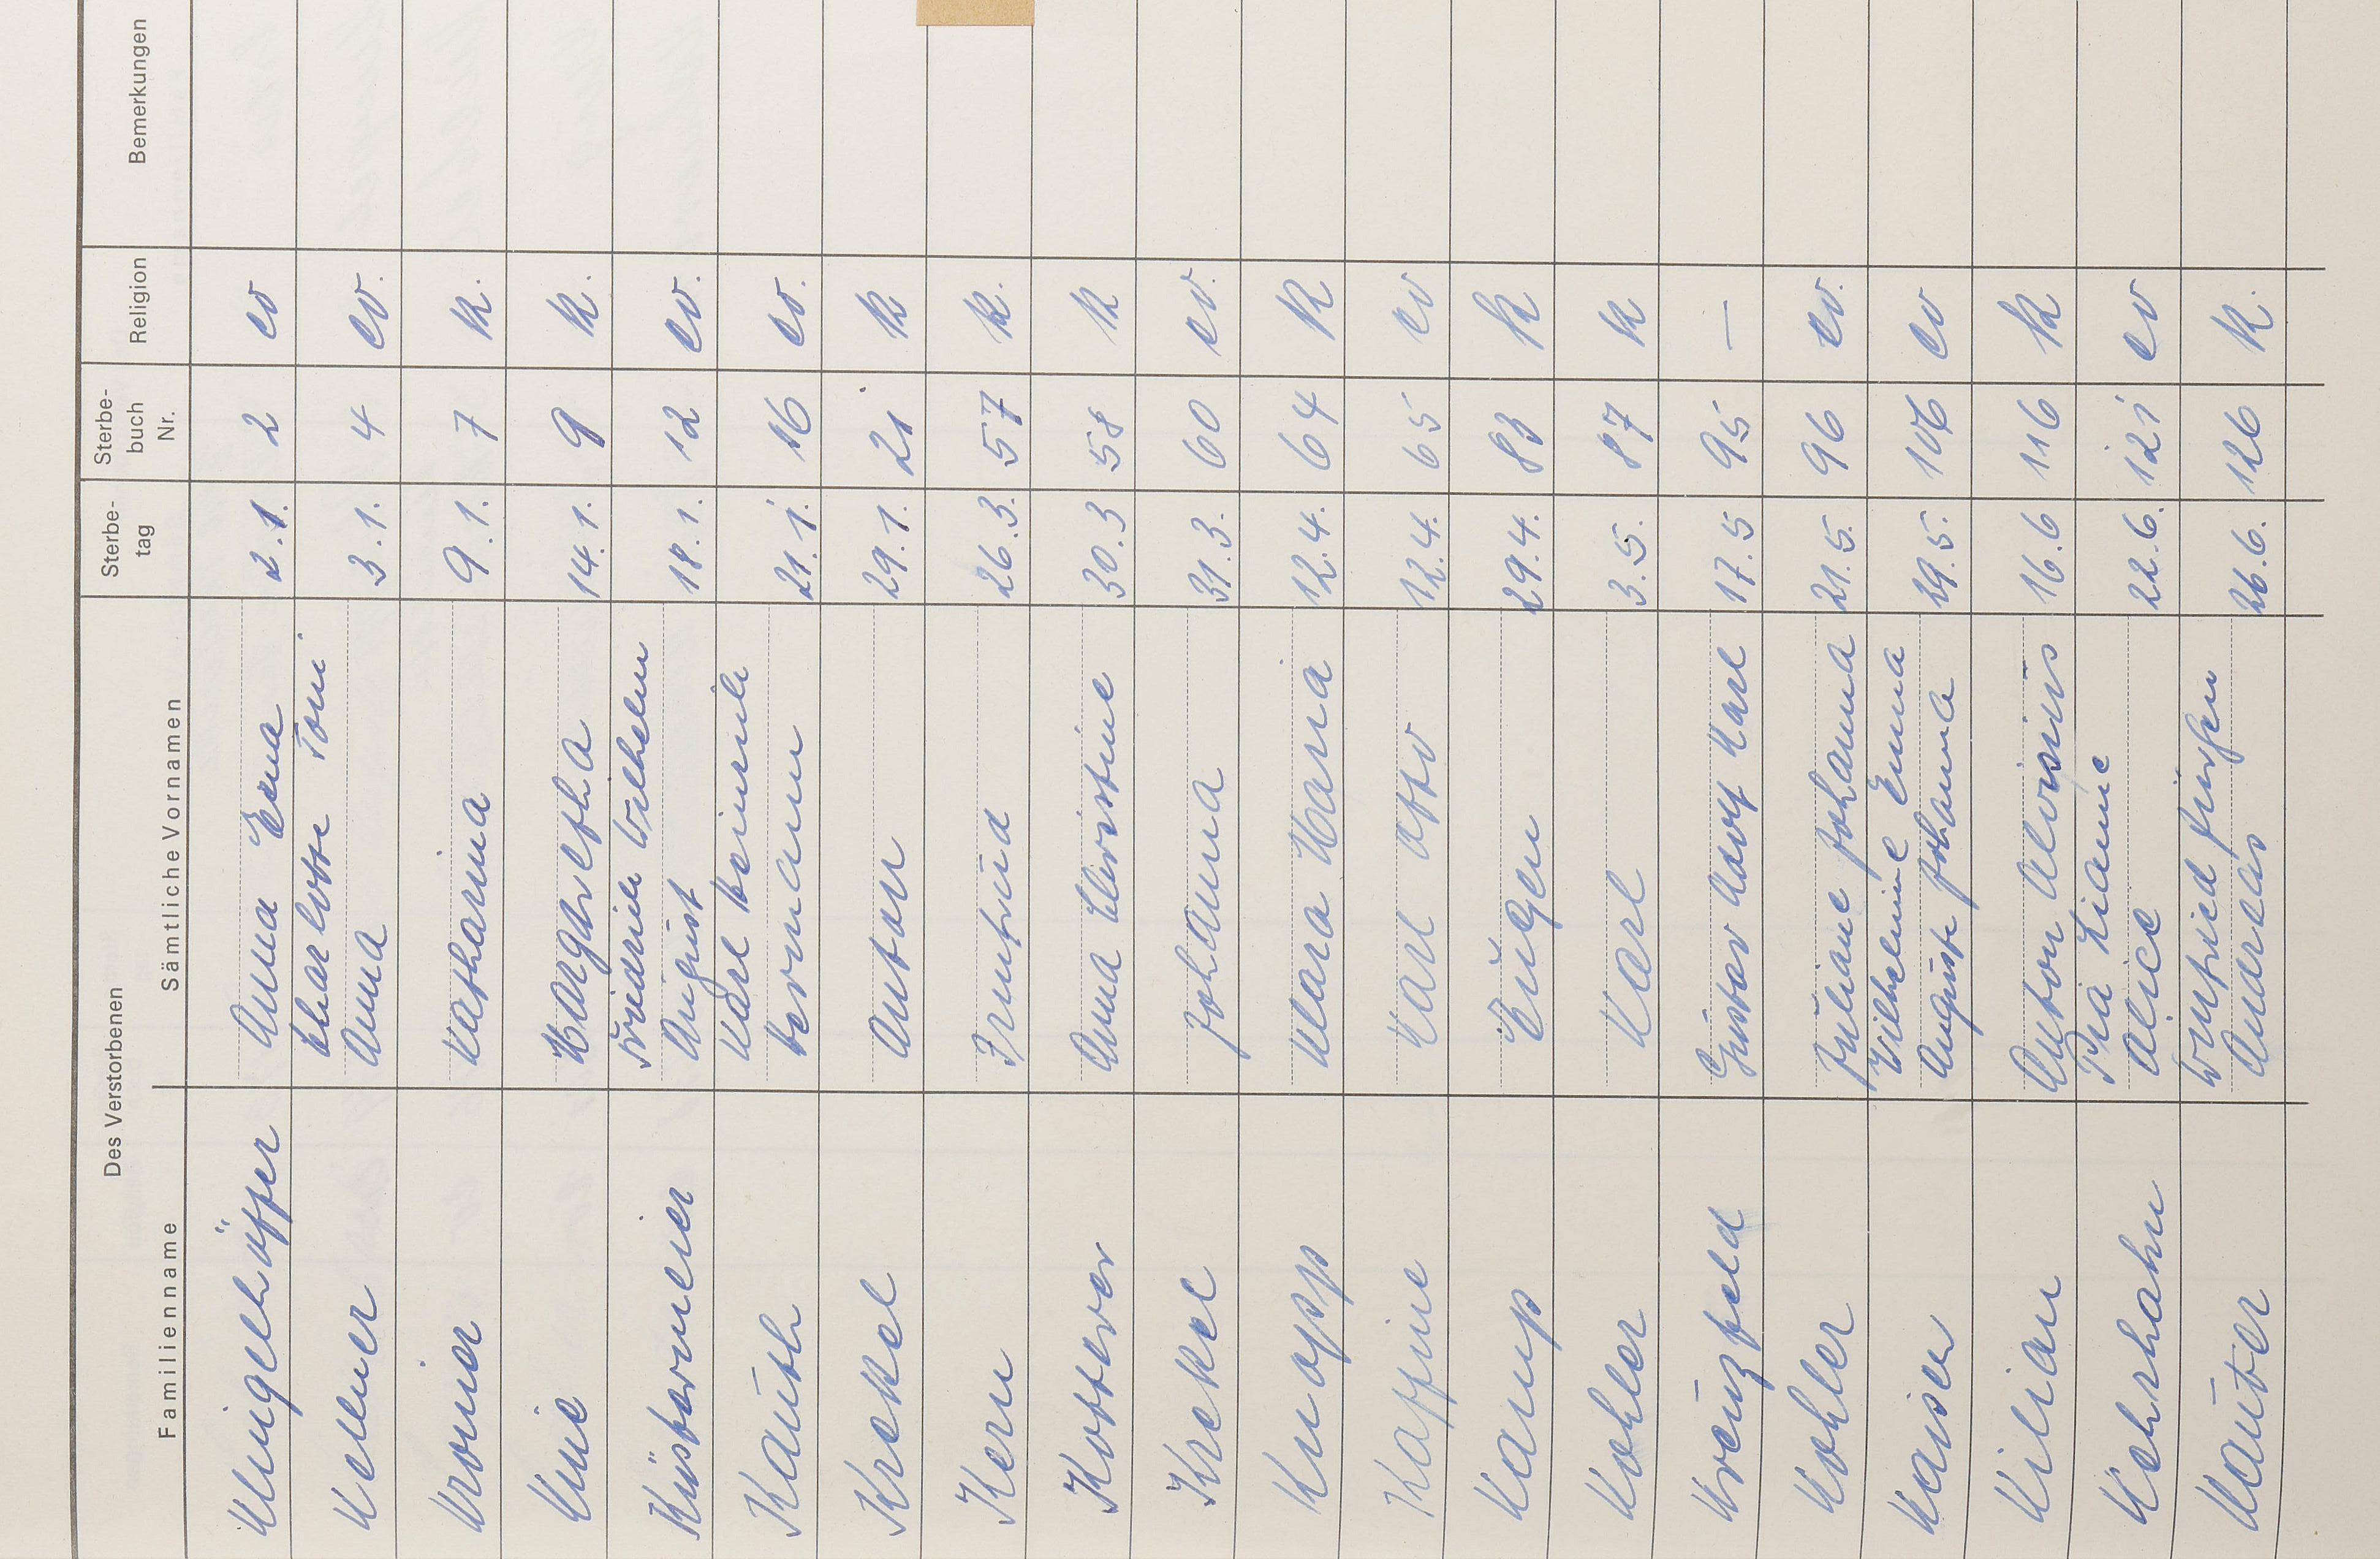 Des Verstorbenen
Sterbe-
tag
Sterbe-
buch
Nr.
Religion
Bemerkungen
Familienname
Sämtliche Vornamen
Klingelhöffer Anna Erna 2.1. 2 ev
Charlotte Toni
Kellner Anna 3.1. 4 ev.
Kronier Katharina 9.1. 7 k.
Knie Margaretha 14.1. 9 k.
Friedrich Wilhelm
Küstermeier August 18.1. 12 ev.
Karl Heinrich
Kauth Hermann 21.1. 16 ev.
Krekel Anton 29.1. 21 k
Kern Irmtrud 26.3. 57 k.
Kotterer Anna Christine 30.3 58 k
Krekel Johanna 31.3. 60 ev.
Knopp Klara Maria 12.4. 64 k
Kaffine Karl Otto 12.4. 65 ev
Kamp Eugen 29.4. 83 k
Kohler Karl 3.5. 87 k
Kreuzfeld Gustav Adolf Karl 17.5 95 —
Kohler Juliane Johanna 21.5. 96 ev.
Wilhelmine Emma
Kaiser Auguste Johanna 29.5. 106 ev
Kilian Anton Aloisius 16.6 116 k
Pia Lianne
Kehrhahn Alice 22.6. 121 ev
Winfried Jürgen
Kauter Andreas 26.6. 126 k.